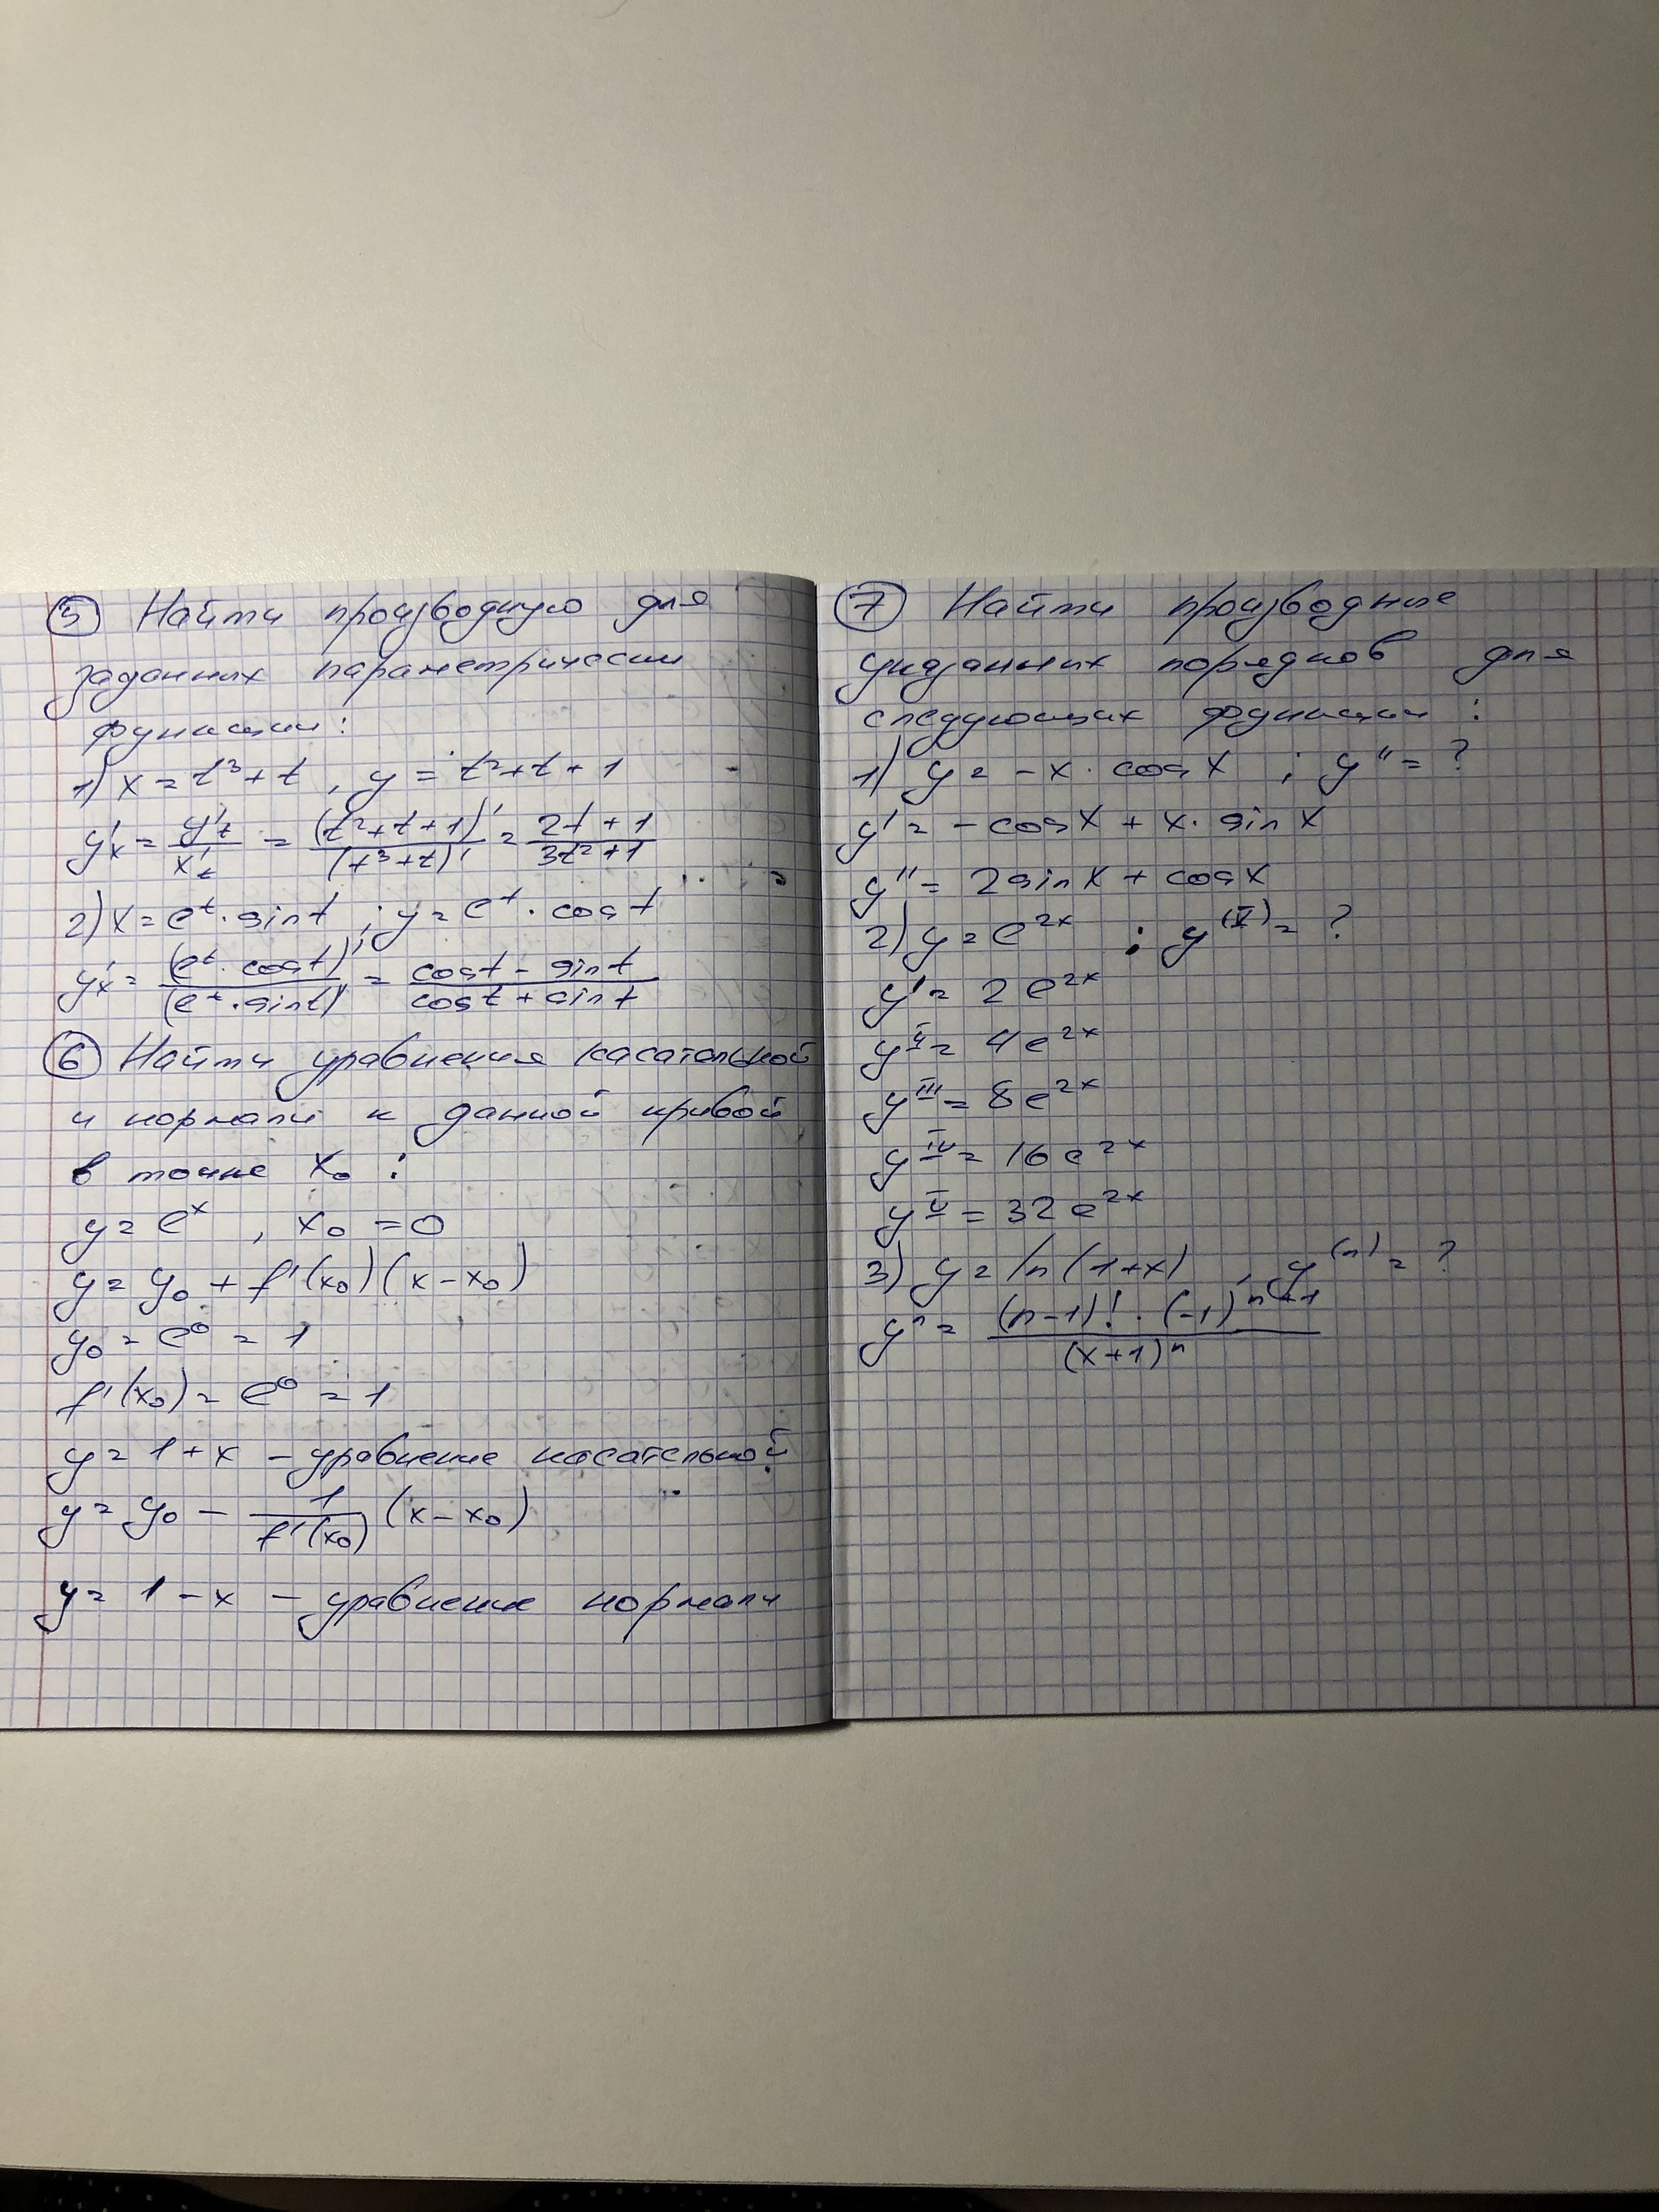 5 Найти производную для
заданных параметрически
функции:
1) x = t³ + t , y = t² + t + 1
y'ₓ = y'ₜ / x'ₜ = (t² + t + 1)' / (t³ + t)' = (2t + 1) / (3t² + 1)
2) x = eᵗ · sin t ; y = eᵗ · cos t
y'ₓ = (eᵗ · cos t)' / (eᵗ · sin t)' = (cos t - sin t) / (cos t + sin t)
6 Найти уравнения касательной
и нормали к данной кривой
в точке x₀ :
y = eˣ , x₀ = 0
y = y₀ + f'(x₀)(x - x₀)
y₀ = e⁰ = 1
f'(x₀) = e⁰ = 1
y = 1 + x - уравнение касательной
y = y₀ - 1 / f'(x₀) (x - x₀)
y = 1 - x - уравнение нормали
7 Найти производные
указанных порядков для
следующих функции :
1) y = - x · cos x ; y'' = ?
y' = - cos x + x · sin x
y'' = 2 sin x + cos x
2) y = e²ˣ ; y^(V) = ?
y' = 2 e²ˣ
y^II = 4 e²ˣ
y^III = 8 e²ˣ
y^IV = 16 e²ˣ
y^V = 32 e²ˣ
3) y = ln (1 + x) , y^(n) = ?
yⁿ = (n - 1)! · (-1)^(n+1) / (x + 1)ⁿ